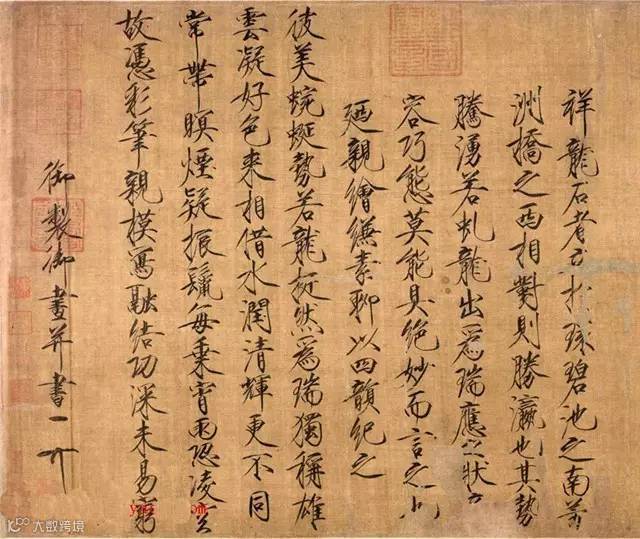 祥龍石者立於環碧池之南芳
洲橋之西相對則勝瀛也其勢
騰湧若虬龍出爲瑞應之狀奇
容巧態莫能具絕妙而言之也
廼親繪縑素聊以四韻紀之
彼美蜿蜒勢若龍挺然爲瑞獨稱雄
雲凝好色來相借水潤清輝更不同
常帶暝煙疑振鬣每乘宵雨恐凌空
故憑彩筆親模寫融結功深未易窮
御製御畫并書
大数跨境